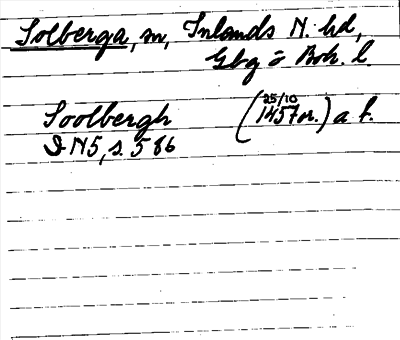 Solberga, sn, Inlands N. hd,
Gbg o Boh. l.
Soolbergh (25/10 1457 or.) a f.
D N 5, s. 586